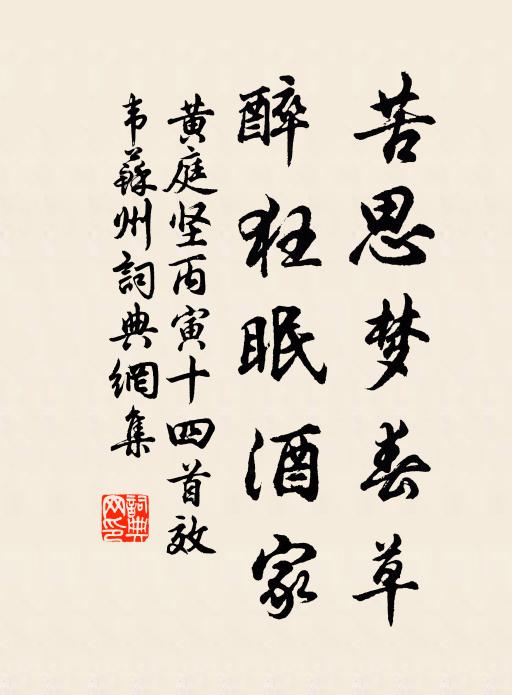 苦思梦春草
醉狂眠酒家
黄庭坚丙寅十四首效
韦蘇州詞典網集
詞典
网印